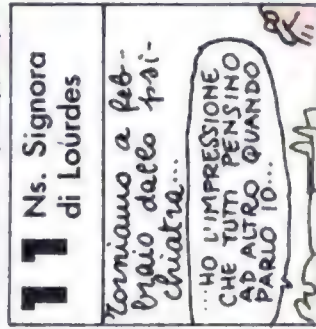 11
Ns. Signora
di Lourdes
Torniamo a feb-
braio dallo psi-
chiatra...
...HO L'IMPRESSIONE
CHE TUTTI PENSINO
AD ALTRO QUANDO
PARLO IO...